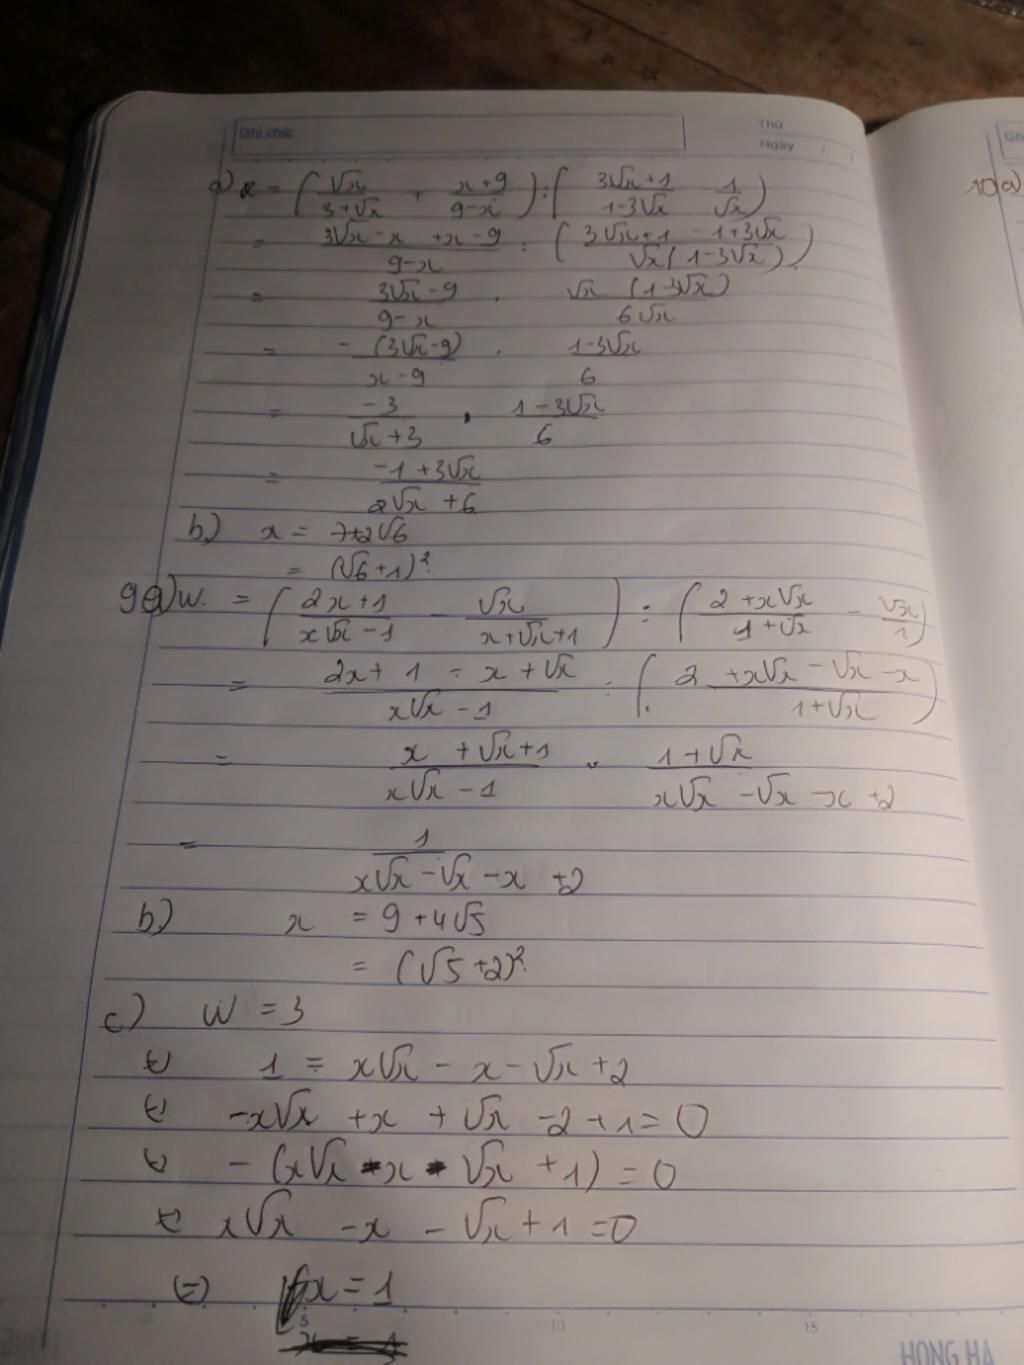 Ghi chú:
Thứ
Ngày / /
a) x = (√x/(3+√x) + (x+9)/(9-x)) : ((3√x+1)/(1-3√x) - 1/√x)
= (3√x - x + x - 9)/(9-x) : ((3√x+1 - 1+3√x)/(√x(1-3√x)))
= (3√x - 9)/(9-x) . (√x (1-3√x))/(6√x)
= (-(3√x-9))/(x-9) . (1-3√x)/6
= (-3)/(√x+3) . (1-3√x)/6
= (-1+3√x)/(2√x+6)
b) x = 7+2√6
= (√6+1)²
9a) W = ((2x+1)/(x√x-1) - √x/(x+√x+1)) : ((2+x√x)/(1+√x) - √x/1)
= (2x+1 - x+√x)/(x√x-1) : ((2+x√x-√x-x)/(1+√x))
= (x+√x+1)/(x√x-1) . (1+√x)/(x√x-√x-x+2)
= 1/(x√x-√x-x+2)
b) x = 9+4√5
= (√5+2)²
c) W = 3
1 = x√x - x - √x + 2
-x√x + x + √x - 2 + 1 = 0
-(x√x - x - √x + 1) = 0
x√x - x - √x + 1 = 0
(=) x = 1
5
10
15
HONG HA
10a)
Gh